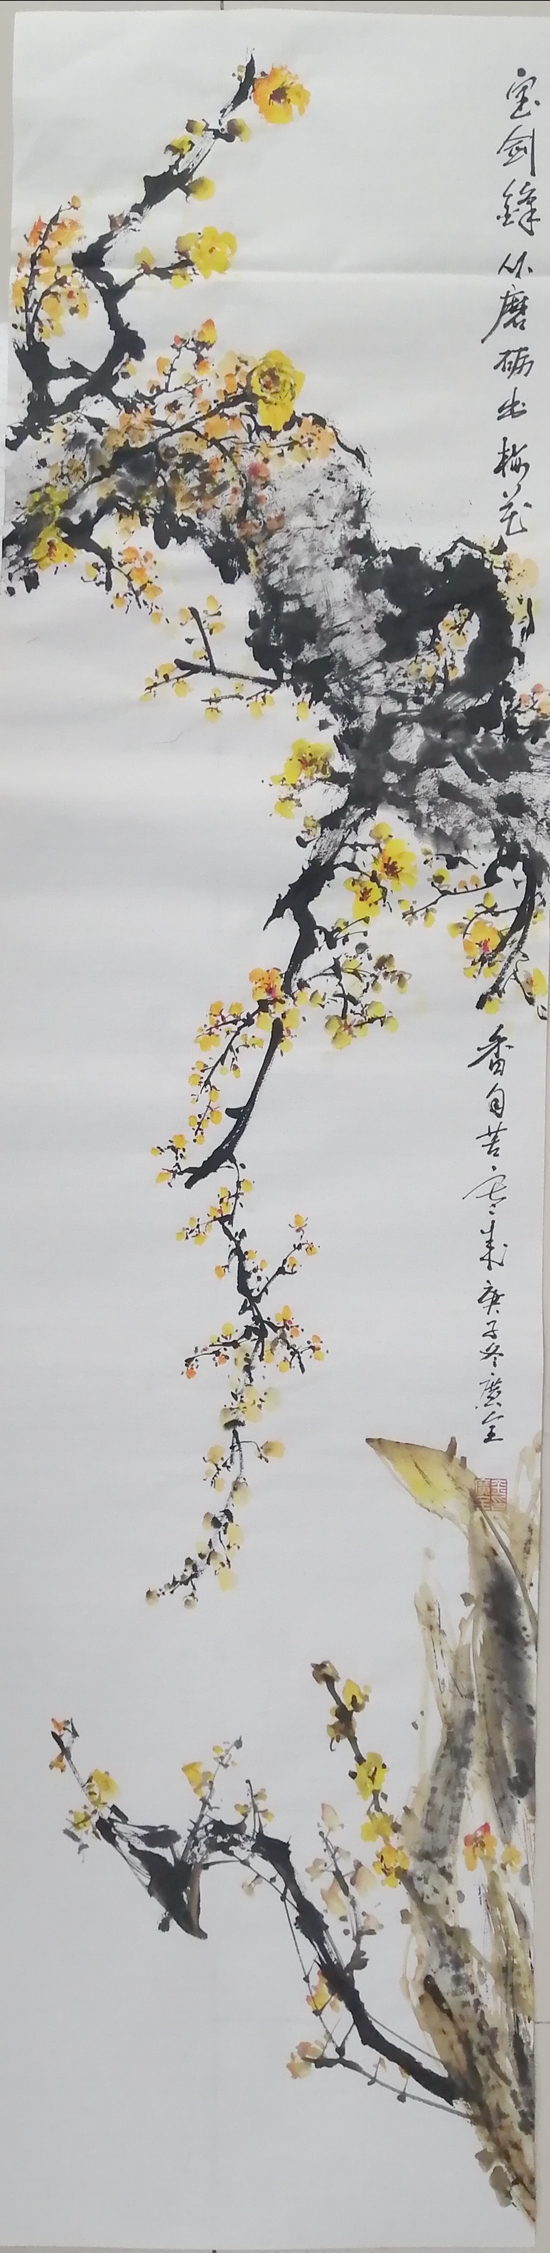 宝剑锋从磨砺出梅花
香自苦寒来庚子冬广全